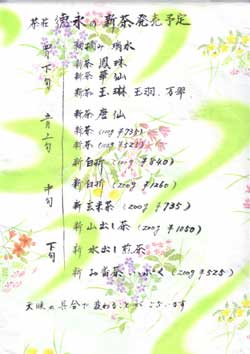 茶荘 徳永の新茶発売予定
四月下旬
新摘み 瑞水
新茶 鳳珠
新茶 華仙
新茶 玉琳 玉羽 万翠
五月上旬
新茶 唐仙
新茶 (100g ¥735)
新茶 (100g ¥525)
新白折 (200g ¥840)
中旬
新白折 (200g ¥1260)
新玄米茶 (200g ¥735)
新山出し茶 (200g ¥1050)
下旬
新水出し煎茶
新お番茶 いっぷく (200g ¥525)
天候の具合で変わることがございます